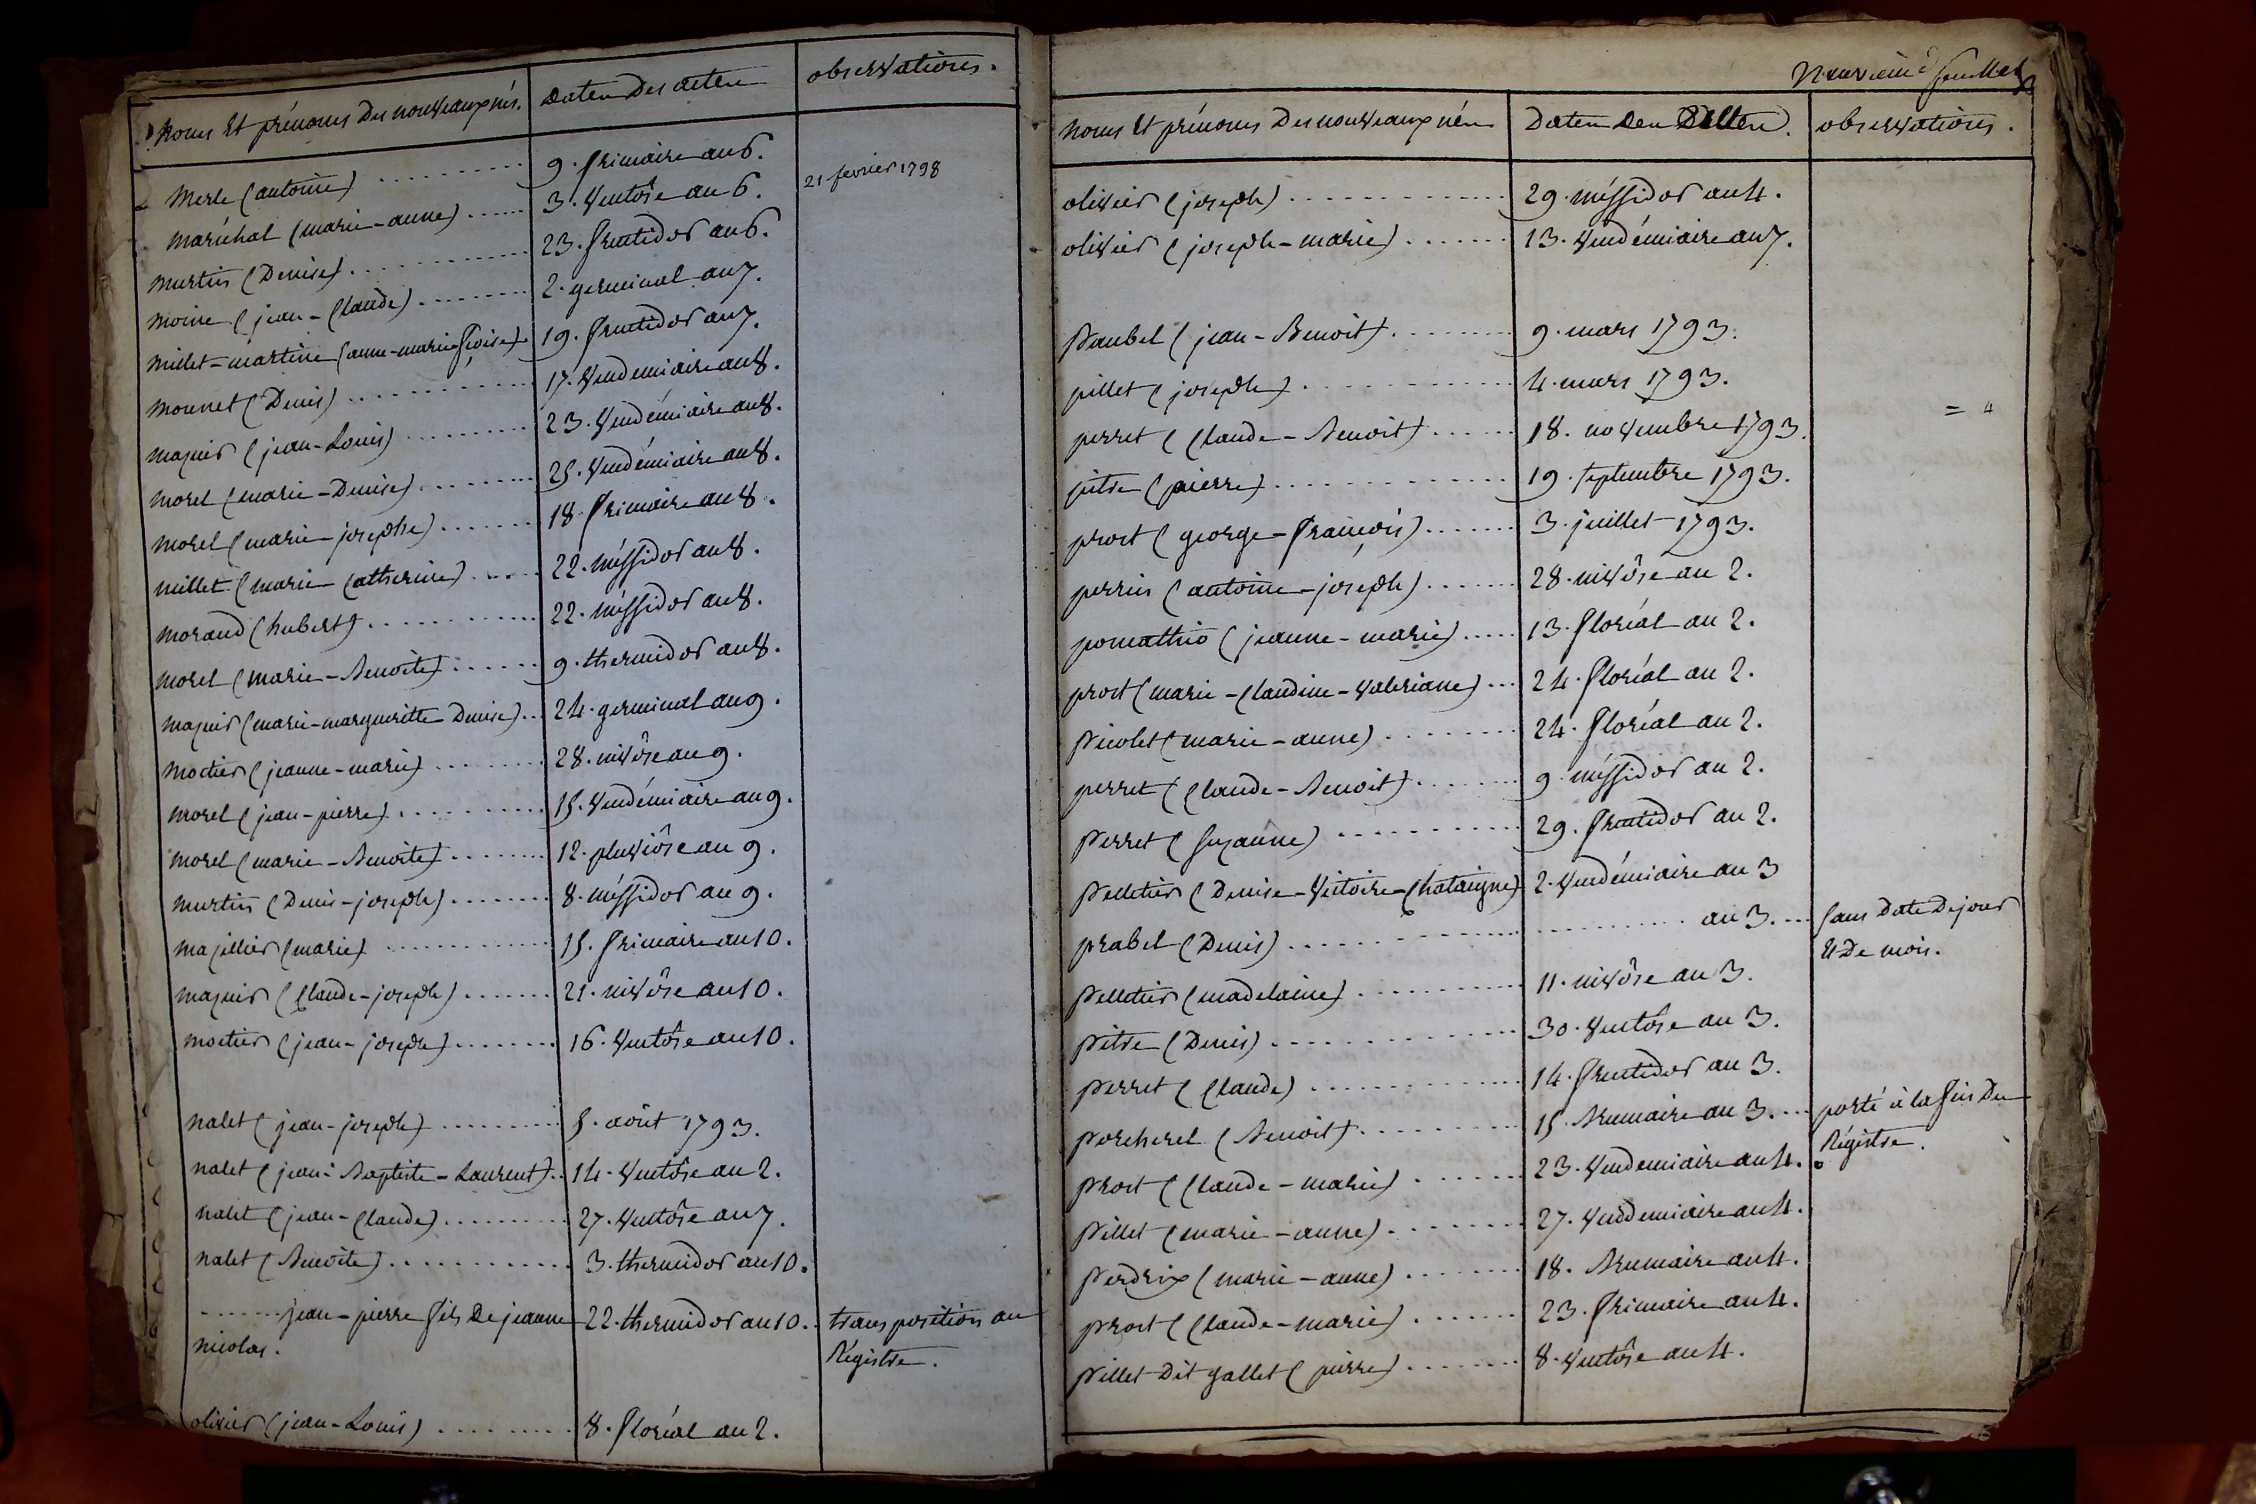 noms Et prénoms Des nouveaux nés. Dates Des actes observations.
Merle (antoine) ......... 9. frimaire an 6.
maréchal (marie-anne) ...... 3. Ventôse an 6. 21 fevrier 1798
murtin (Denise) ......... 23. fructidor an 6.
moine (jean-Claude) ......... 2. germinal an 7.
millet-martine (anne-marie fçoise) 19. fructidor an 7.
monnet (Denis) ......... 17. Vendemiaire an 8.
magnin (jean-Louis) ......... 23. Vendémiaire an 8.
morel (marie-Denise) ......... 25. Vendémiaire an 8.
morel (marie-josephe) ....... 18. frimaire an 8.
millet (marie-Catherine) ..... 22. méssidor an 8.
morand (hubert) ............ 22. méssidor an 8.
morel (marie-Benoite) ...... 9. thermidor an 8.
magnin (marie-margueritte Denise) .. 24. germinal an 9.
moctier (jeanne-marie) ........ 28. nivôse an 9.
morel (jean-pierre) .......... 15. Vendémiaire an 9.
morel (marie-Benoite) ........ 12. pluviôse an 9.
murtin (Denis-joseph) ........ 8. méssidor an 9.
majillier (marie) ............. 15. frimaire an 10.
magnin (Claude-joseph) ....... 21. nivôse an 10.
moctier (jean-joseph) ........ 16. Ventôse an 10.
nalet (jean-joseph) .......... 5. août 1793.
nalet (jean-Baptiste-Laurent) .. 14. Ventôse an 2.
nalet (jean-Claude) .......... 27. Ventôse an 7.
nalet (Benoite) ............ 3. thermidor an 10.
....... jean-pierre fils De jeanne 22. thermidor an 10. . transposition au
nicolas. Régistre.
olivier (jean-Louis) ......... 8. floréal an 2.
Neuvieme feuillet
noms Et prénoms Des nouveaux nés Dates Des Actes. observations.
olivier (joseph) ............. 29. méssidor an 4.
olivier (joseph-marie) ....... 13. Vendémiaire an 7.
Paubel (jean-Benoit) ......... 9. mars 1793.
pillet (joseph) ............. 4. mars 1793.
perret (Claude-Benoit) ..... 18. novembre 1793.
pitre (pierre) ............. 19. septembre 1793.
prost (george-françois) ...... 3. juillet 1793.
perrin (antoine-joseph) ...... 28. nivôse an 2.
pomathio (jeanne-marie) ..... 13. floréal an 2.
prost (marie-Claudine-Valeriane) ... 24. floréal an 2.
Picolet (marie-anne) ........ 24. floréal an 2.
perret (Claude-Benoit) ....... 9. méssidor an 2.
Perret (Suzanne) ........... 29. fructidor an 2.
Pelletier (Denise-Victoire-Chataigne) 2. Vendémiaire an 3
prabel (Denis) ....................... an 3. ... Sans Date De jour
Et De mois.
Pelletier (madelaine) ........... 11. nivôse an 3.
Pitre (Denis) ................. 30. Ventôse an 3.
Perret (Claude) .............. 14. fructidor an 3.
Porcherel (Benoit) ........... 15. Brumaire an 3. ... porté à la fin Du
Régistre.
Prost (Claude-marie) ....... 23. Vendemiaire an 4.
Pillet (marie-anne) ......... 27. Vendemiaire an 4.
Perdrix (marie-anne) ........ 18. Brumaire an 4.
Prost (Claude-marie) ....... 23. frimaire an 4.
Pillet Dit gallet (pierre) ....... 8. Ventôse an 4.